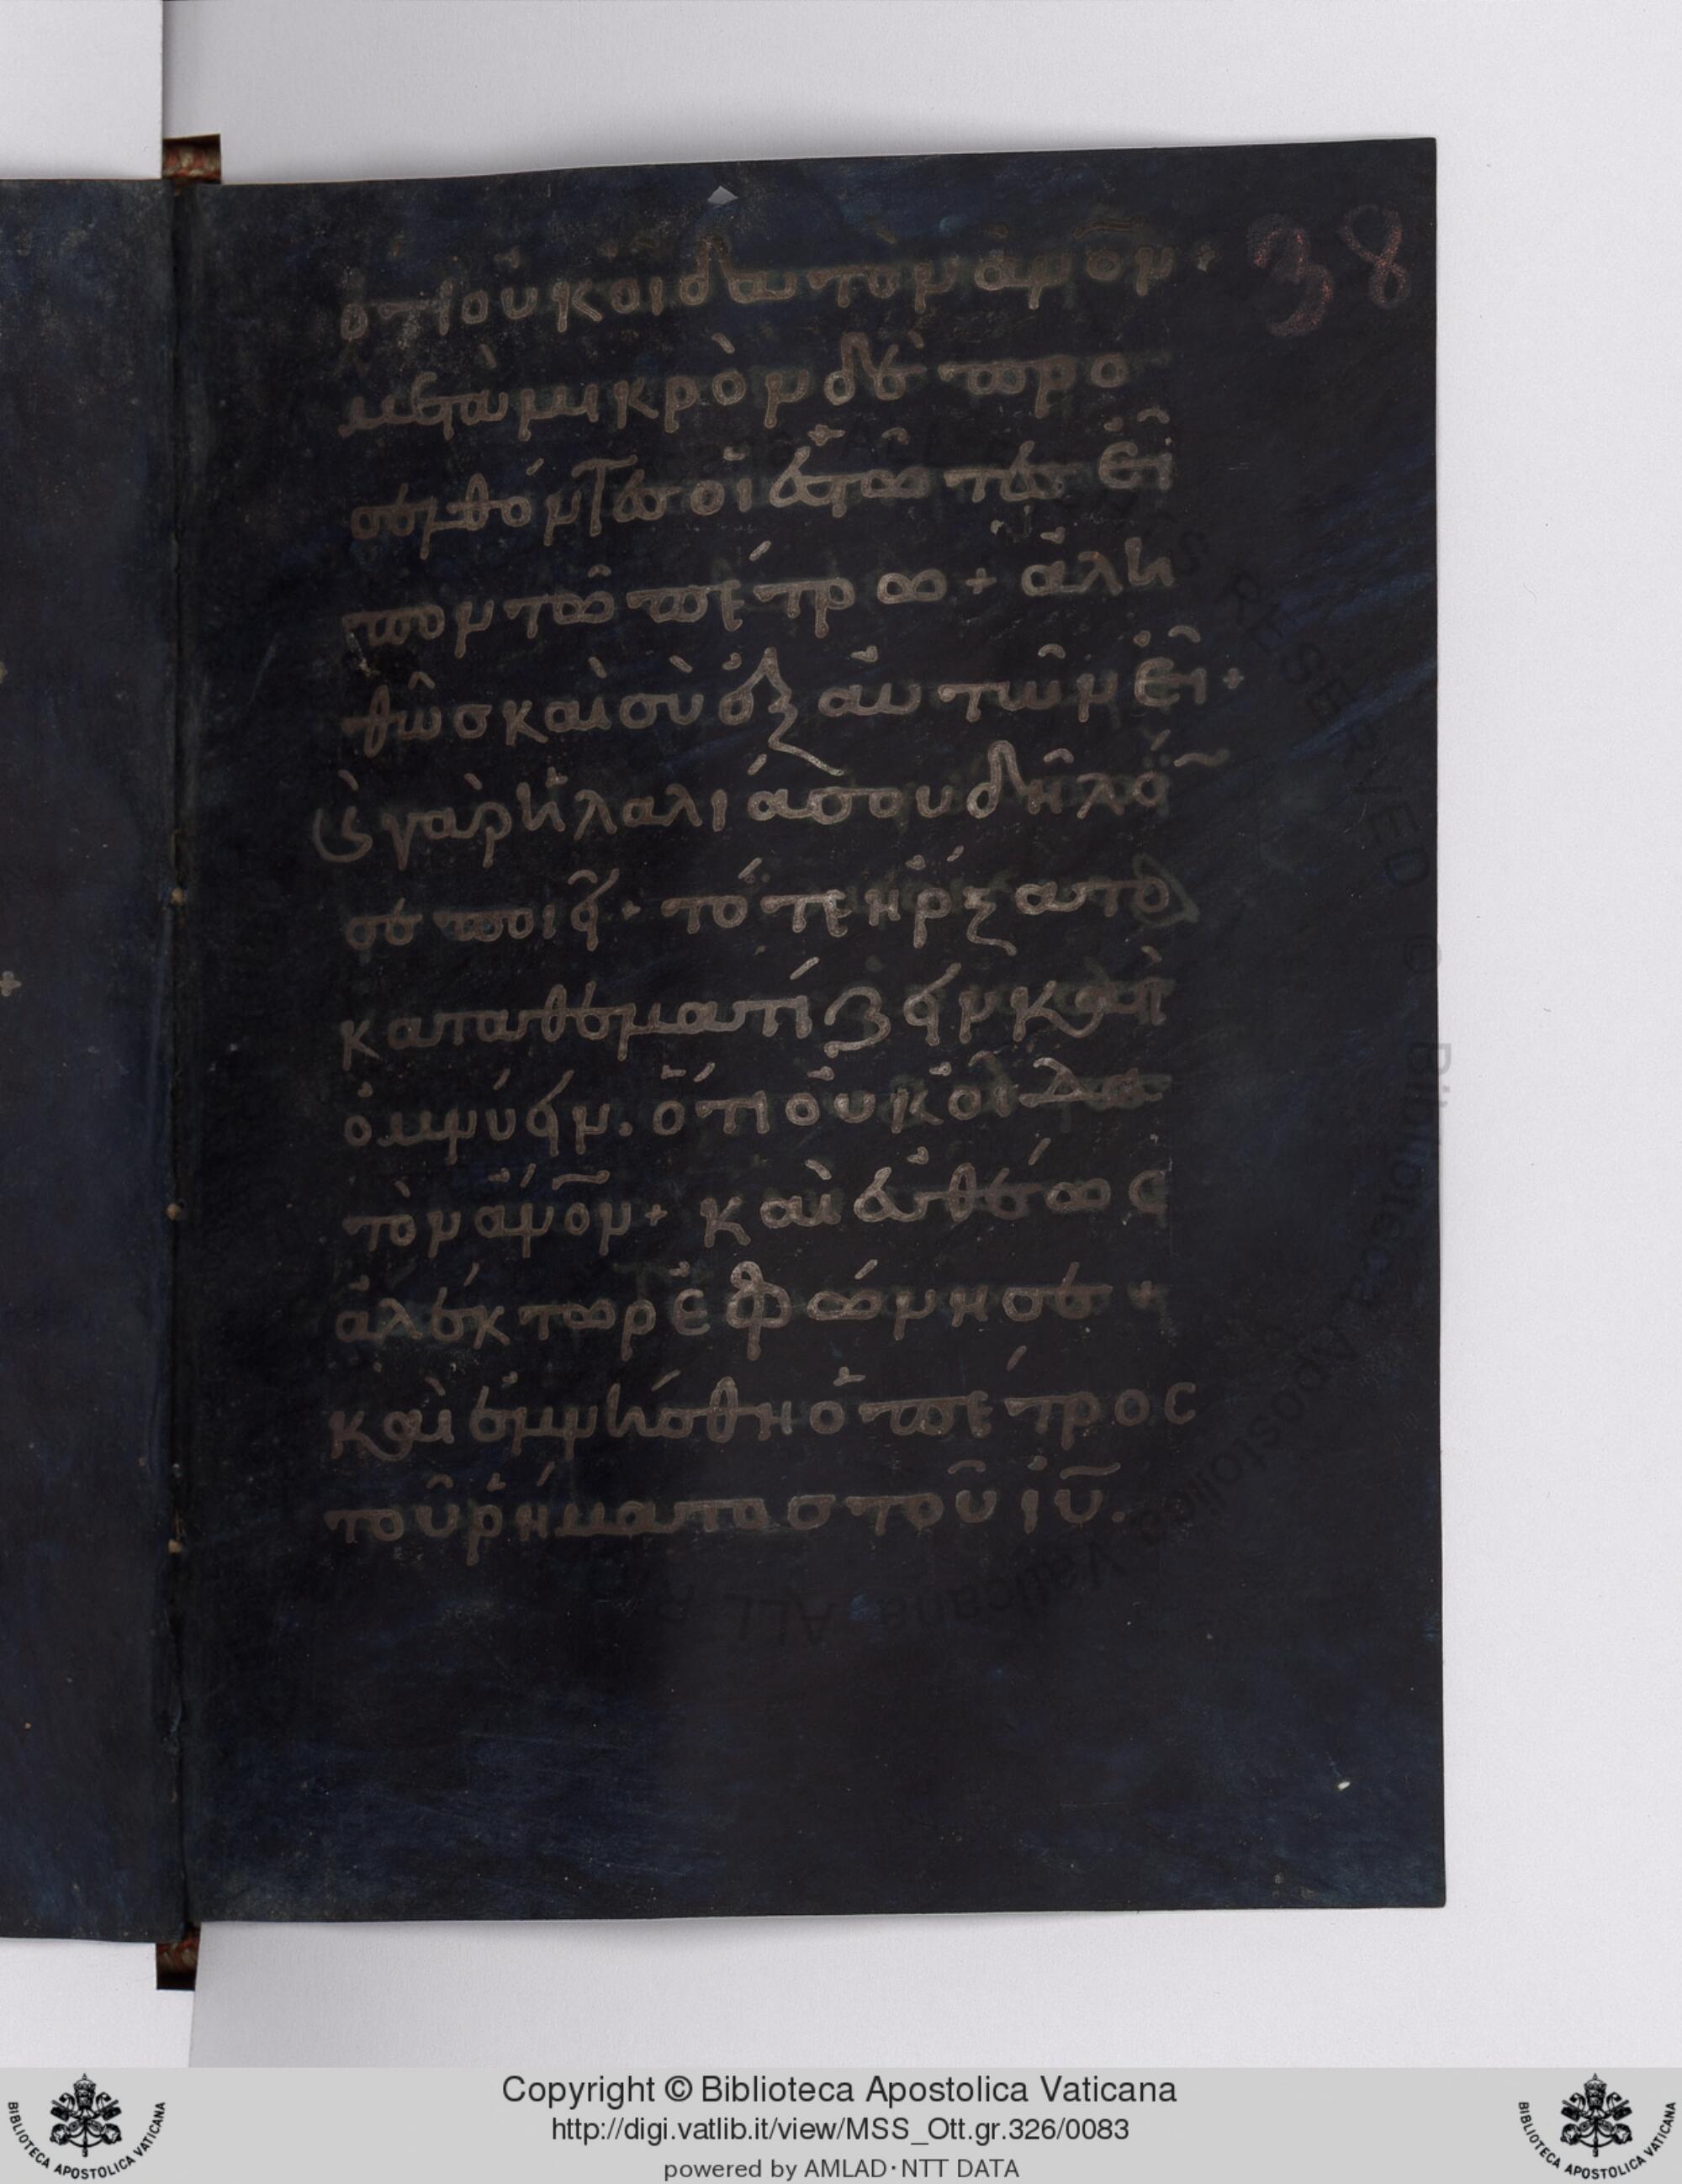 ὅτι οὐκ οἶδα τὸν ἄνον +
μετὰ μικρὸν δὲ προ
σελθόντες οἱ ἑστῶτες εἶ
πον τῶ πέτρω + ἀλη
θῶσ καὶ σὺ ἐξ αὐτῶν εἶ +
κ γὰρ ἡ λαλιά σου δῆλό
σε ποιεῖ · τότε ἤρξατο
καταθεματίζειν καὶ
ὀμνύειν. ὅτι οὐκ οἶδα
τὸν ἄνον + καὶ εὐθέως
ἀλέκτωρ ἐφώνησε +
καὶ ἐμνήσθη ὁ πέτρος
τοῦ ῥήματοσ τοῦ ιυ.
38
Copyright © Biblioteca Apostolica Vaticana
http://digi.vatlib.it/view/MSS_Ott.gr.326/0083
powered by AMLAD·NTT DATA
BIBLIOTECA APOSTOLICA VATICANA
BIBLIOTECA APOSTOLICA VATICANA